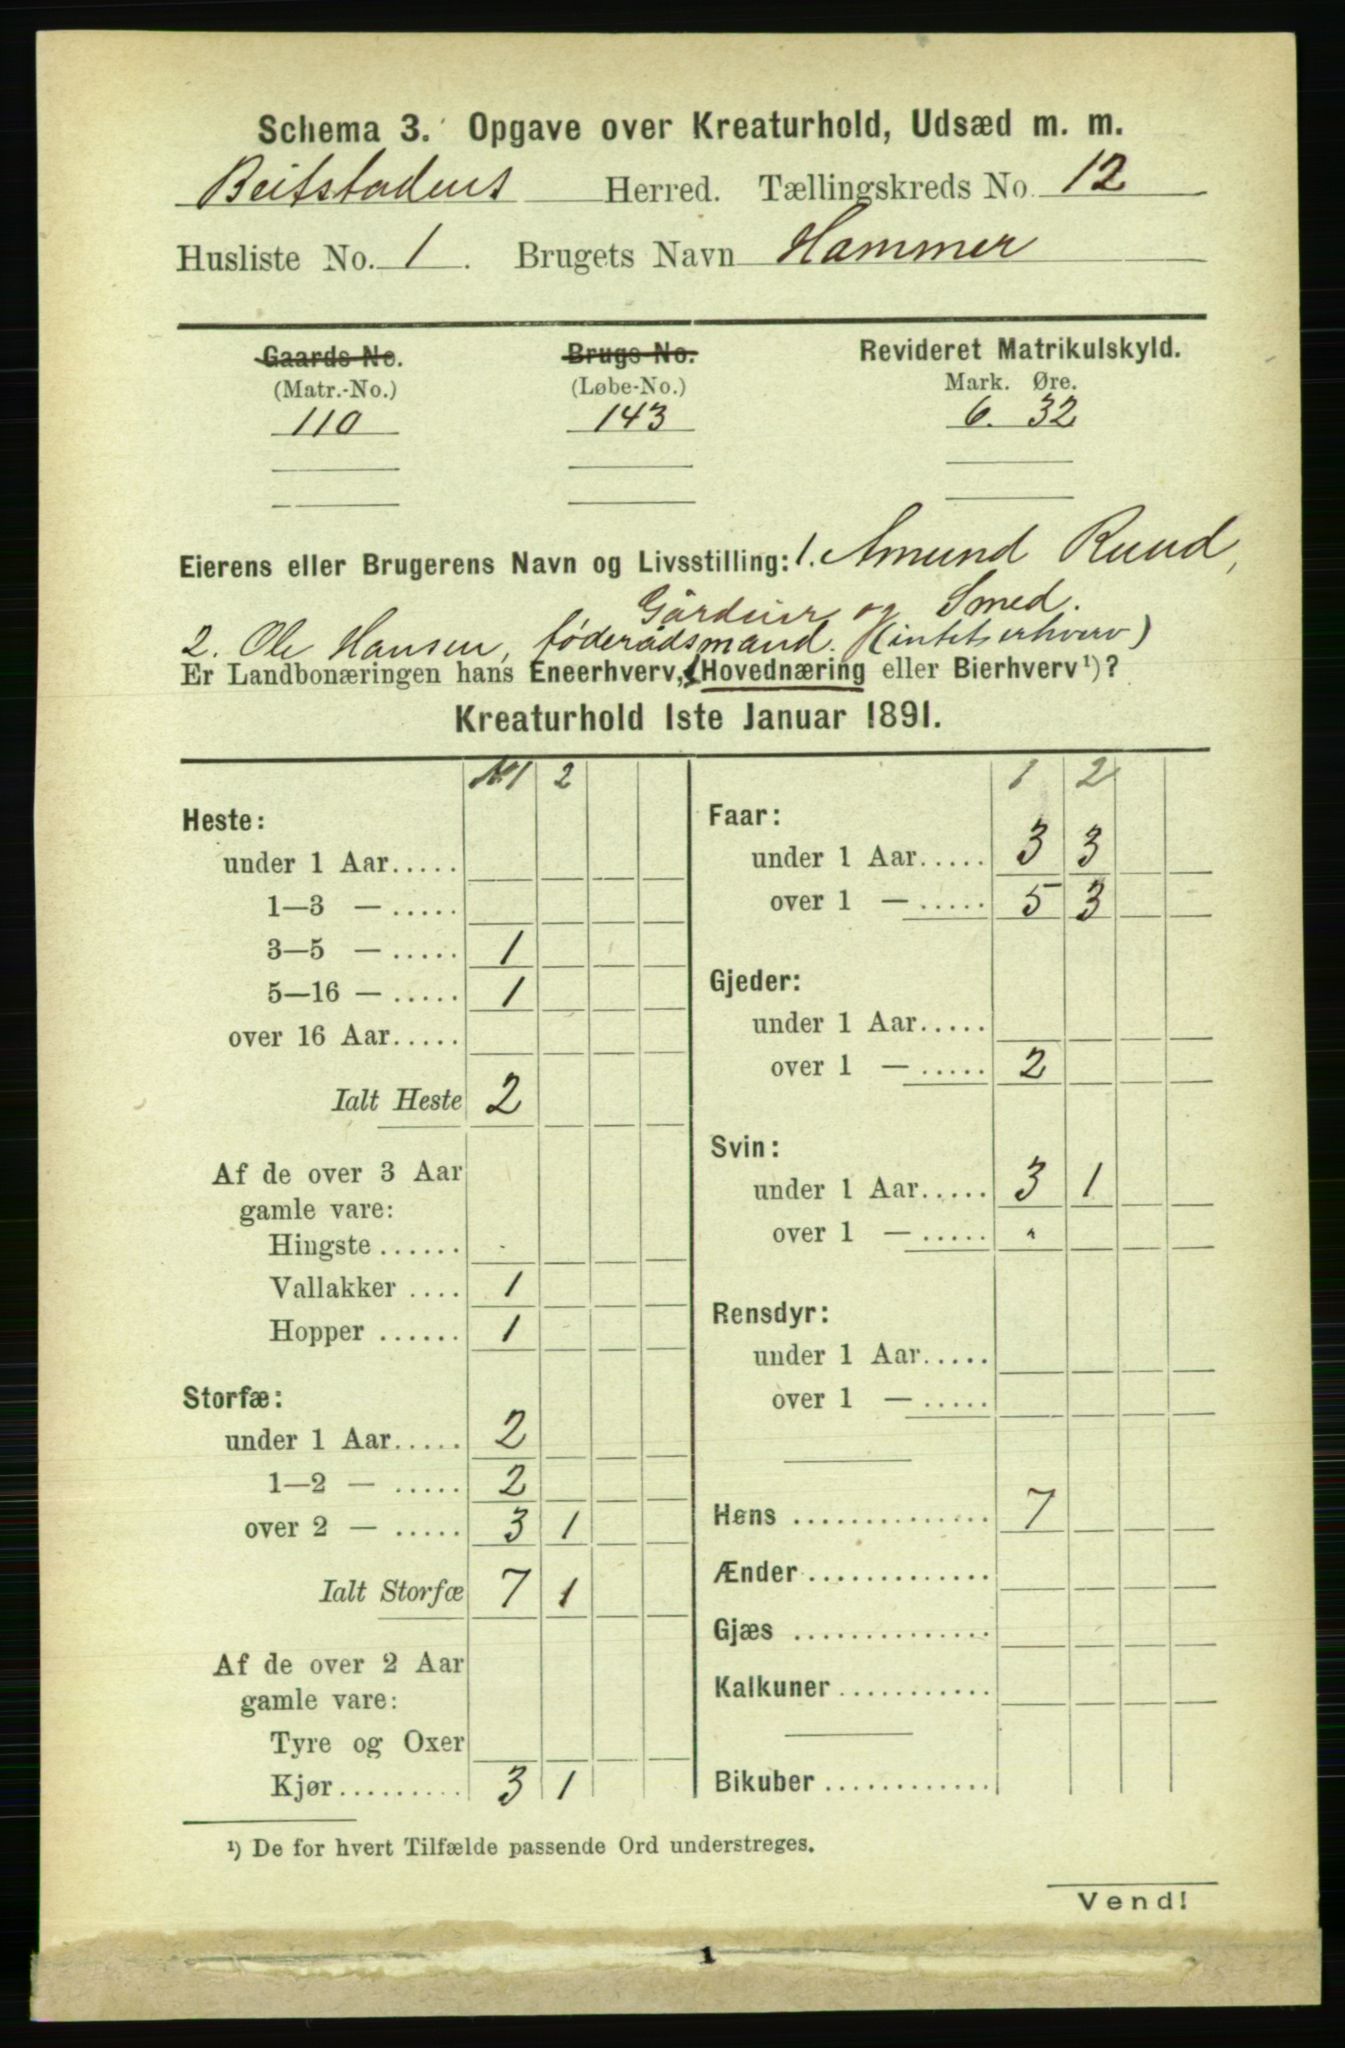 Schema 3. Opgave over Kreaturhold, Udsæd m. m.
Beitstadens Herred. Tællingskreds No. 12
Husliste No. 1. Brugets Navn Hammer
Gaards No. Brugs No. Revideret Matrikulskyld.
(Matr.-No.) (Løbe-No.) Mark. Øre.
110 143 6. 32
Eierens eller Brugerens Navn og Livsstilling: 1. Amund Ruud,
Gårdeier og Smed.
2. Ole Hansen, føderådsmand. (intet erhverv)
Er Landbonæringen hans Eneerhverv, Hovednæring eller Bierhverv¹)?
Kreaturhold 1ste Januar 1891.
No 1 2
Heste:
under 1 Aar.....
1—3 — .....
3—5 — ..... 1
5—16 — ..... 1
over 16 Aar.....
Ialt Heste 2
Af de over 3 Aar
gamle vare:
Hingste ......
Vallakker .... 1
Hopper ...... 1
Storfæ:
under 1 Aar..... 2
1—2 — ..... 2
over 2 — ..... 3 1
Ialt Storfæ 7 1
Af de over 2 Aar
gamle vare:
Tyre og Oxer
Kjør......... 3 1
1 2
Faar:
under 1 Aar..... 3 3
over 1 — ..... 5 3
Gjeder:
under 1 Aar.....
over 1 — ..... 2
Svin:
under 1 Aar..... 3 1
over 1 — ..... "
Rensdyr:
under 1 Aar.....
over 1 — .....
Høns .............. 7
Ænder .............
Gjæs ..............
Kalkuner ...........
Bikuber ............
¹) De for hvert Tilfælde passende Ord understreges.
Vend!
1